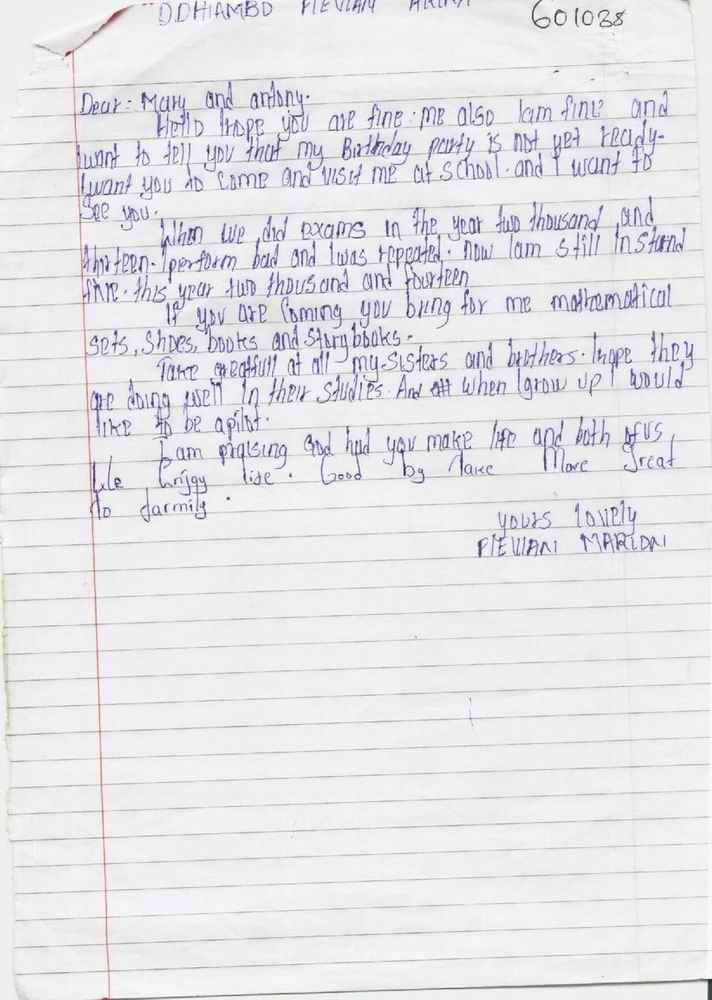 ODHIAMBO FIEVIANI
601038
Dear: Mary and antony.
Hello Ihope you are fine. me also Iam fine and
Iwant to tell you that my Birthday party is not yet ready.
Iwant you to come and visit me at school. and I want to
see you.
When we did exams in the year two thousand and
thirteen. Iperform bad and Iwas repeated. now Iam still in stand
five. this year two thousand and fourteen
If you are coming you bring for me mathematical
sets, shoes, books and storybooks.
Take greatfull at all my sisters and brothers. Ihope they
are doing well in their studies. And when Igrow up I would
like to be apilot.
I am praising God had you make life and both of us
We Enjoy life. Good by Take More Great
to farmily.
yours lovely
FIEVIANI MARION